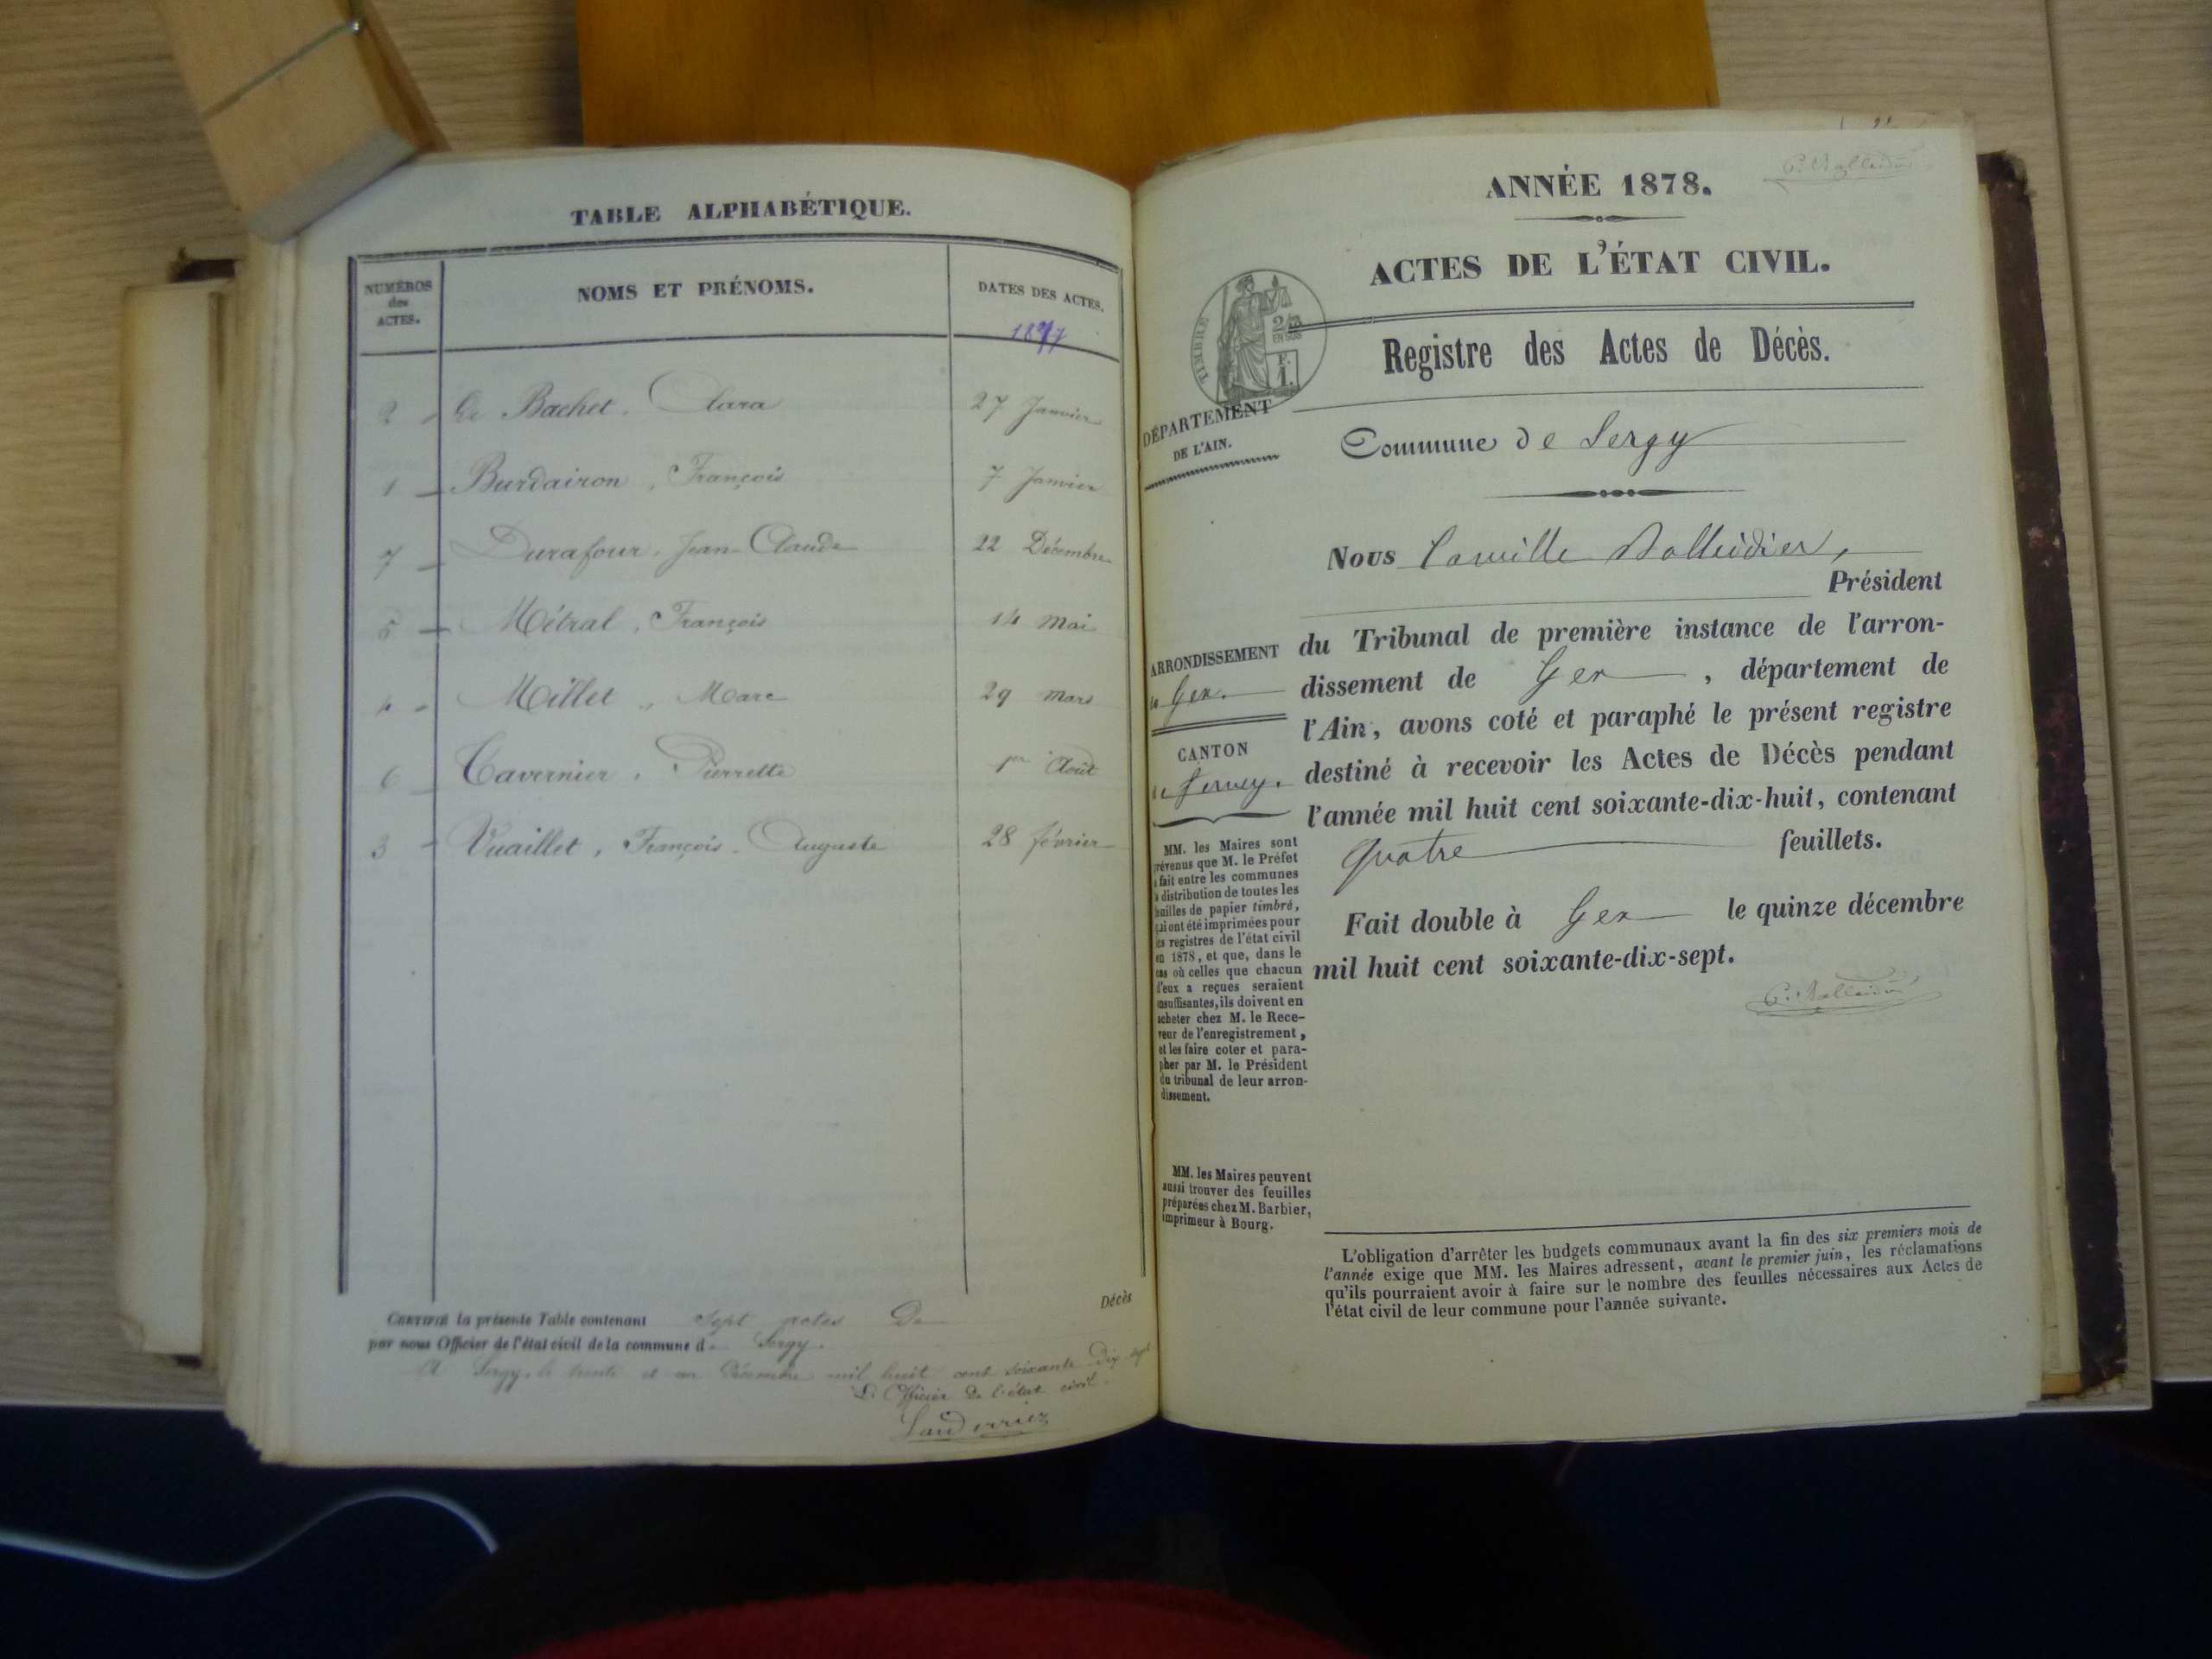 TABLE ALPHABÉTIQUE.
NUMÉROS des ACTES.
NOMS ET PRÉNOMS.
DATES DES ACTES.
1877
2 De Bachet, Clara 27 Janvier
1 Burdairon, François 7 Janvier
7 Durafour, Jean-Claude 22 Décembre
5 Métral, François 14 Mai
4 Millet, Marc 29 Mars
6 Tavernier, Pierrette 1er Août
3 Vuaillet, François-Auguste 28 février
CERTIFIÉ la présente Table contenant Sept actes De Décès
par nous Officier de l'état civil de la commune d. Sergy.
A Sergy, le trente et un Décembre mil huit cent soixante Dix-sept
L'Officier De l'état civil.
ANNÉE 1878.
ACTES DE L'ÉTAT CIVIL.
TIMBRE
2/10
EN SUS
F.
1.
Registre des Actes de Décès.
DÉPARTEMENT
DE L'AIN.
Commune de Sergy
Nous Camille Dalleidier,
Président
du Tribunal de première instance de l'arron-
dissement de Gex, département de
l'Ain, avons coté et paraphé le présent registre
destiné à recevoir les Actes de Décès pendant
l'année mil huit cent soixante-dix-huit, contenant
quatre feuillets.
Fait double à Gex le quinze décembre
mil huit cent soixante-dix-sept.
ARRONDISSEMENT
Gex.
CANTON
Ferney.
MM. les Maires sont
prévenus que M. le Préfet
a fait entre les communes
la distribution de toutes les
feuilles de papier timbré,
qui ont été imprimées pour
les registres de l'état civil
en 1878, et que, dans le
cas où celles que chacun
d'eux a reçues seraient
insuffisantes, ils doivent en
acheter chez M. le Rece-
veur de l'enregistrement,
et les faire coter et para-
pher par M. le Président
du tribunal de leur arron-
dissement.
MM. les Maires peuvent
aussi trouver des feuilles
préparées chez M. Barbier,
imprimeur à Bourg.
L'obligation d'arrêter les budgets communaux avant la fin des six premiers mois de
l'année exige que MM. les Maires adressent, avant le premier juin, les réclamations
qu'ils pourraient avoir à faire sur le nombre des feuilles nécessaires aux Actes de
l'état civil de leur commune pour l'année suivante.